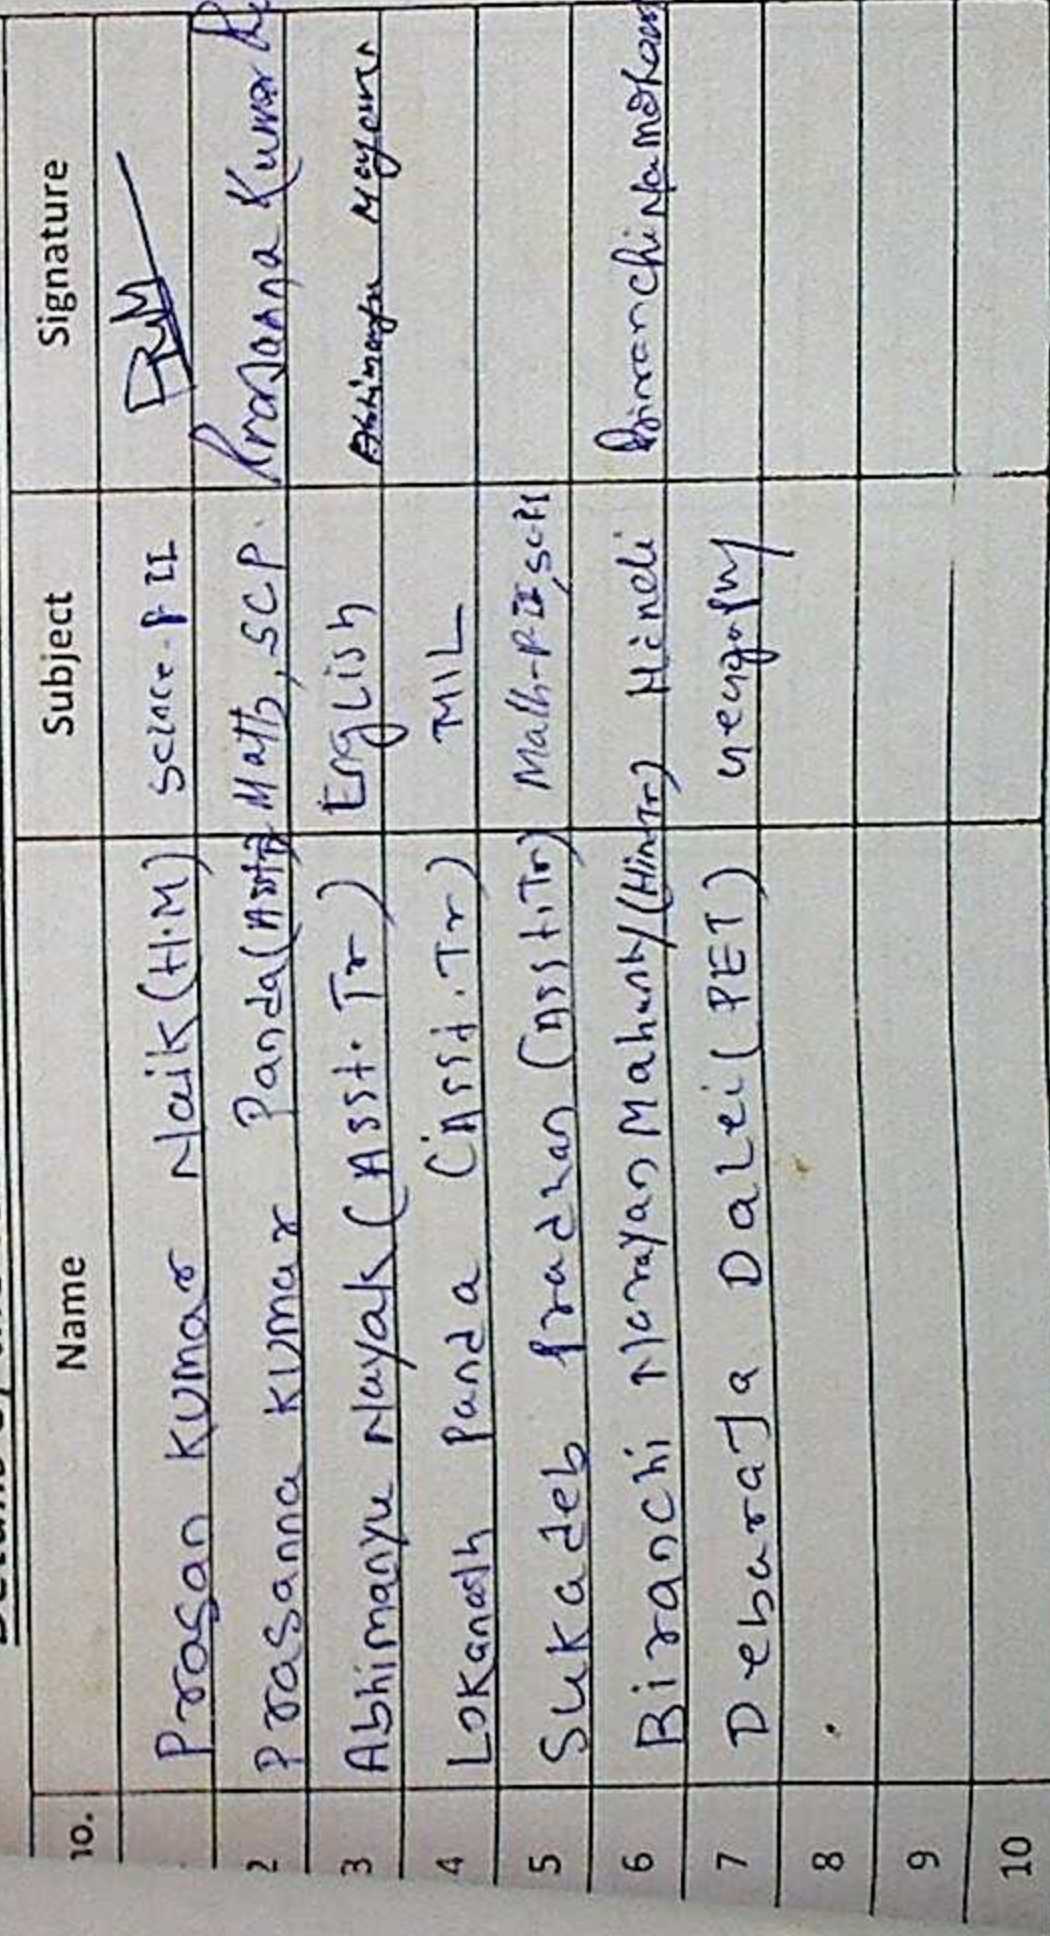 no. Name Subject Signature
Prasan Kumar Naik (H.M) Science-P II
2 Prasanna Kumar Panda (Asst Math, SCP. Prasanna Kumar
3 Abhimanyu Nayak (Asst. Tr) English Abhimanyu Nayak
4 Lokanath Panda (Asst. Tr) MIL
5 Sukadeb Pradhan (Asst. Tr) Math-P-II,
6 Biranchi Narayan Mahanty (Hin Tr) Hindi Biranchi
7 Debaraja Dalei (PET)
8
9
10